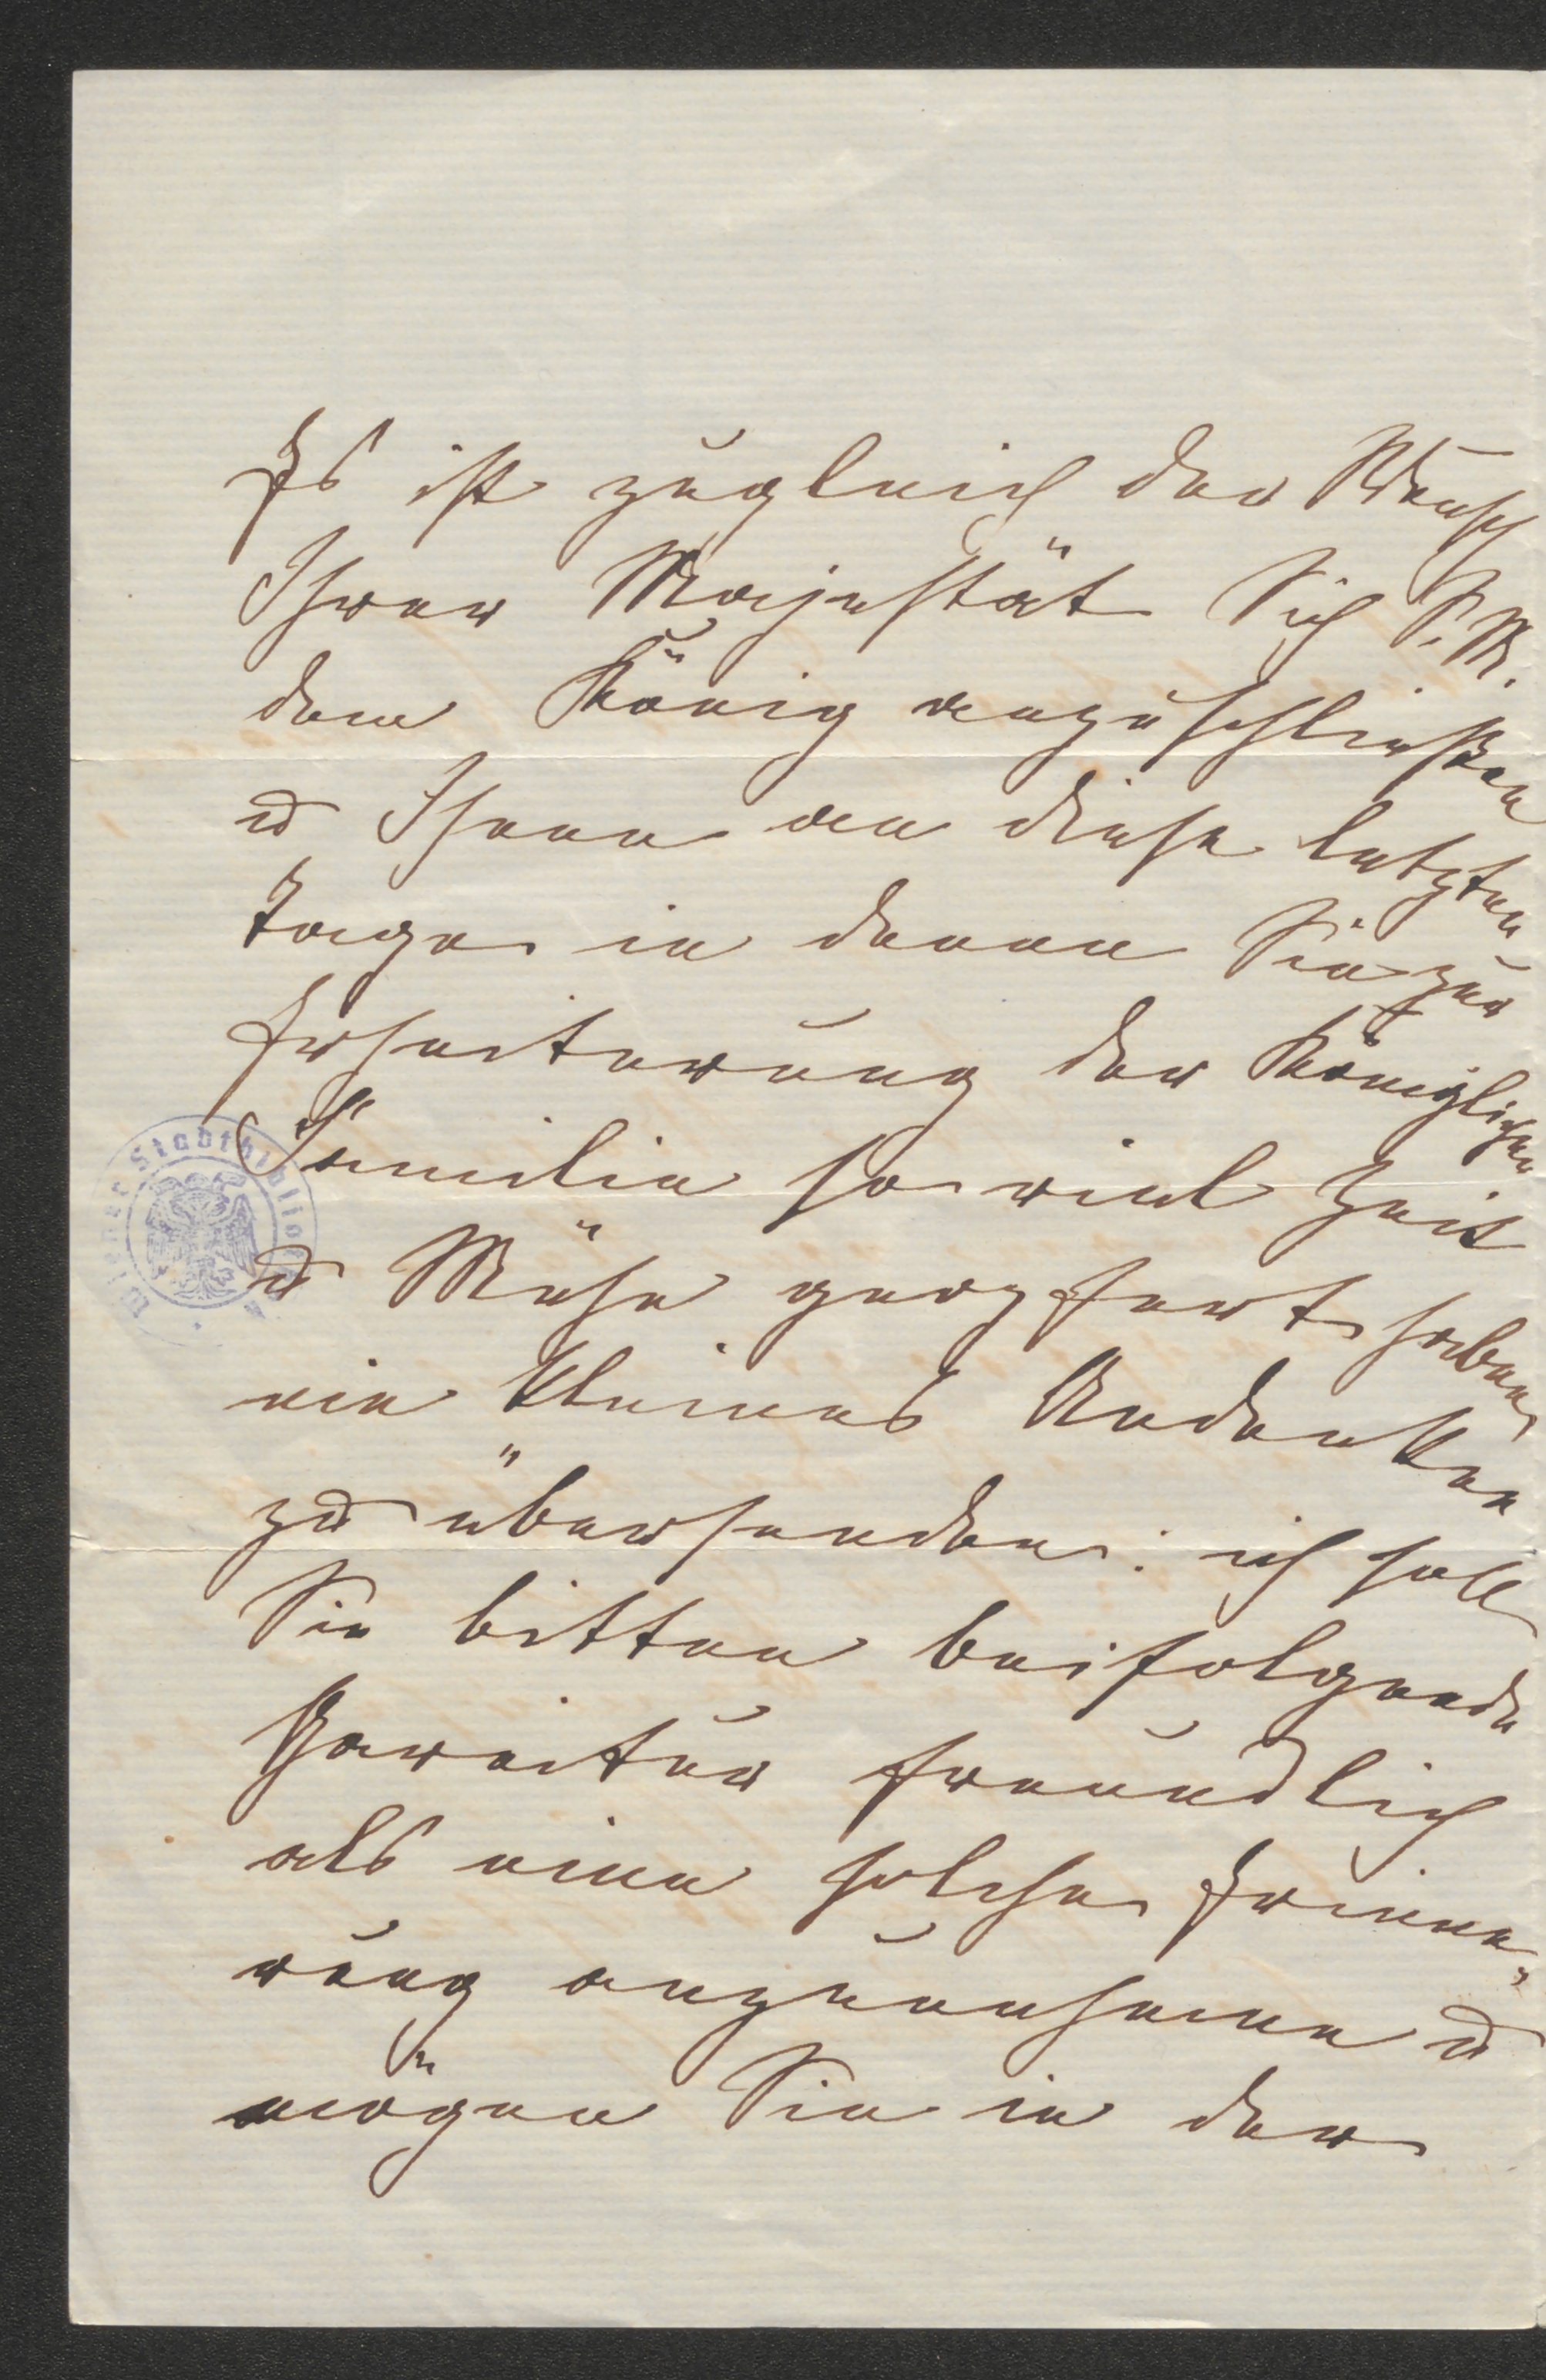 Es ist zugleich der Wunsch
Ihrer Majestät Sich S. M.
dem König anzuschließen
u Ihnen an diese letzten
Tage in denen Sie zur
Erheiterung der Königlichen
Familie so viel Zeit
u Mühe geopfert haben
ein kleines Andenken
zu übersenden: ich soll
Sie bitten beifolgende
Garnitur freundlich
als eine solche Erinne-
rung anzunehmen u
mögen Sie in der
Wiener Stadtbibliothek